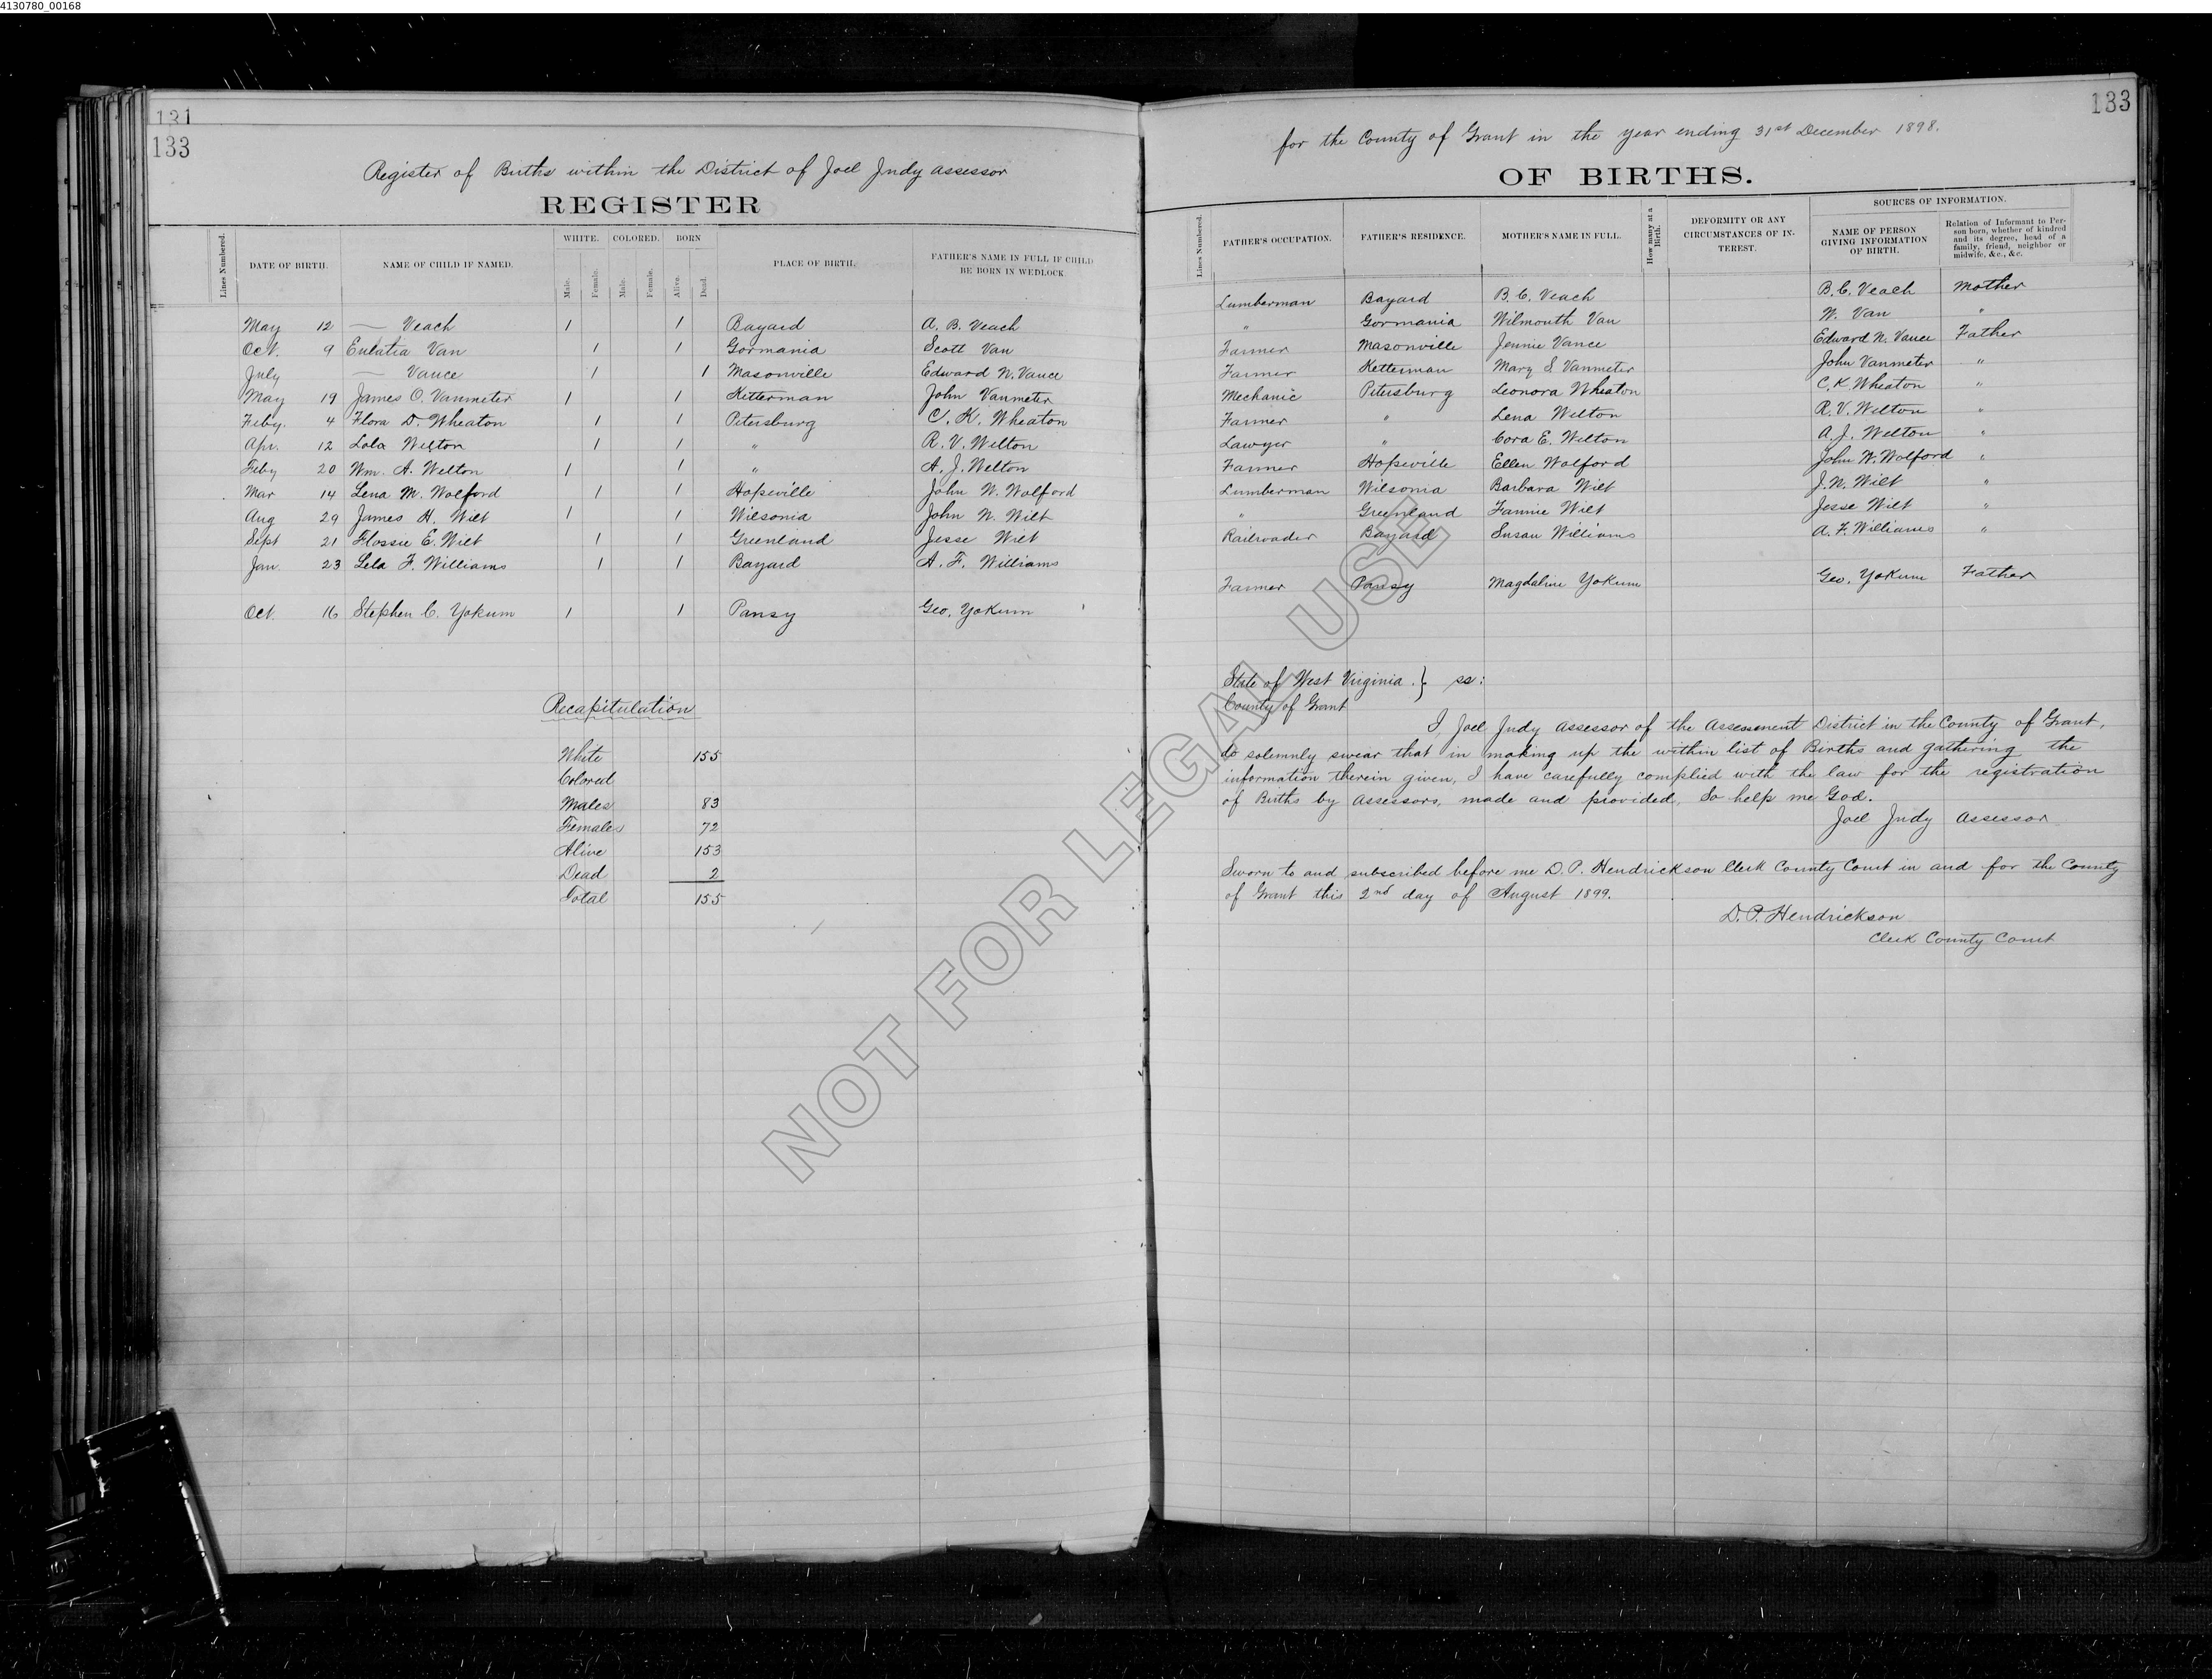 4130780_00168
131
133
Register of Births within the District of Joel Judy Assessor
REGISTER
Lines Numbered.
DATE OF BIRTH.
NAME OF CHILD IF NAMED.
WHITE. COLORED. BORN
Male. Female. Male. Female. Alive. Dead.
PLACE OF BIRTH.
FATHER'S NAME IN FULL IF CHILD BE BORN IN WEDLOCK
May 12 — Veach 1 1 Bayard A. B. Veach
Oct. 9 Eulatia Van 1 1 Gormania Scott Van
July — Vance 1 1 Masonville Edward W. Vance
May 19 James O. Vanmeter 1 1 Ketterman John Vanmeter
Feby. 4 Flora D. Wheaton 1 1 Petersburg C. K. Wheaton
Apr. 12 Lola Welton 1 1 " R. V. Welton
Feby 20 Wm. A. Welton 1 1 " A. J. Welton
Mar 14 Lena M. Wolford 1 1 Hopeville John W. Wolford
Aug 29 James H. Wilt 1 1 Wilsonia John N. Wilt
Sept 21 Flossie E. Wilt 1 1 Greenland Jesse Wilt
Jan. 23 Lela F. Williams 1 1 Bayard A. F. Williams
Oct. 16 Stephen C. Yokum 1 1 Pansy Geo. Yokum
Recapitulation
White 155
Colored
Males 83
Females 72
Alive 153
Dead 2
Total 155
133
for the County of Grant in the year ending 31st December 1898.
OF BIRTHS.
Lines Numbered.
FATHER'S OCCUPATION.
FATHER'S RESIDENCE.
MOTHER'S NAME IN FULL.
How many at a Birth.
DEFORMITY OR ANY CIRCUMSTANCES OF INTEREST.
SOURCES OF INFORMATION.
NAME OF PERSON GIVING INFORMATION OF BIRTH.
Relation of Informant to Person born, whether of kindred and its degree, head of a family, friend, neighbor or midwife, &c., &c.
Lumberman Bayard B. C. Veach B. C. Veach Mother
" Gormania Wilmouth Van W. Van "
Farmer Masonville Jennie Vance Edward W. Vance Father
Farmer Ketterman Mary S Vanmeter John Vanmeter "
Mechanic Petersburg Leonora Wheaton C. K. Wheaton "
Farmer " Lena Welton R. V. Welton "
Lawyer " Cora E. Welton A. J. Welton "
Farmer Hopeville Ellen Wolford John W. Wolford "
Lumberman Wilsonia Barbara Wilt J. N. Wilt "
" Greenland Fannie Wilt Jesse Wilt "
Railroader Bayard Susan Williams A. F. Williams "
Farmer Pansy Magdaline Yokum Geo. Yokum Father
State of West Virginia } ss:
County of Grant
I, Joel Judy Assessor of the Assessment District in the County of Grant,
do solemnly swear that in making up the within list of Births and gathering the
information therein given, I have carefully complied with the law for the registration
of Births by Assessors, made and provided, So help me God.
Joel Judy Assessor
Sworn to and subscribed before me D. P. Hendrickson Clerk County Court in and for the County
of Grant this 2nd day of August 1899.
D. P. Hendrickson
Clerk County Court
NOT FOR LEGAL USE